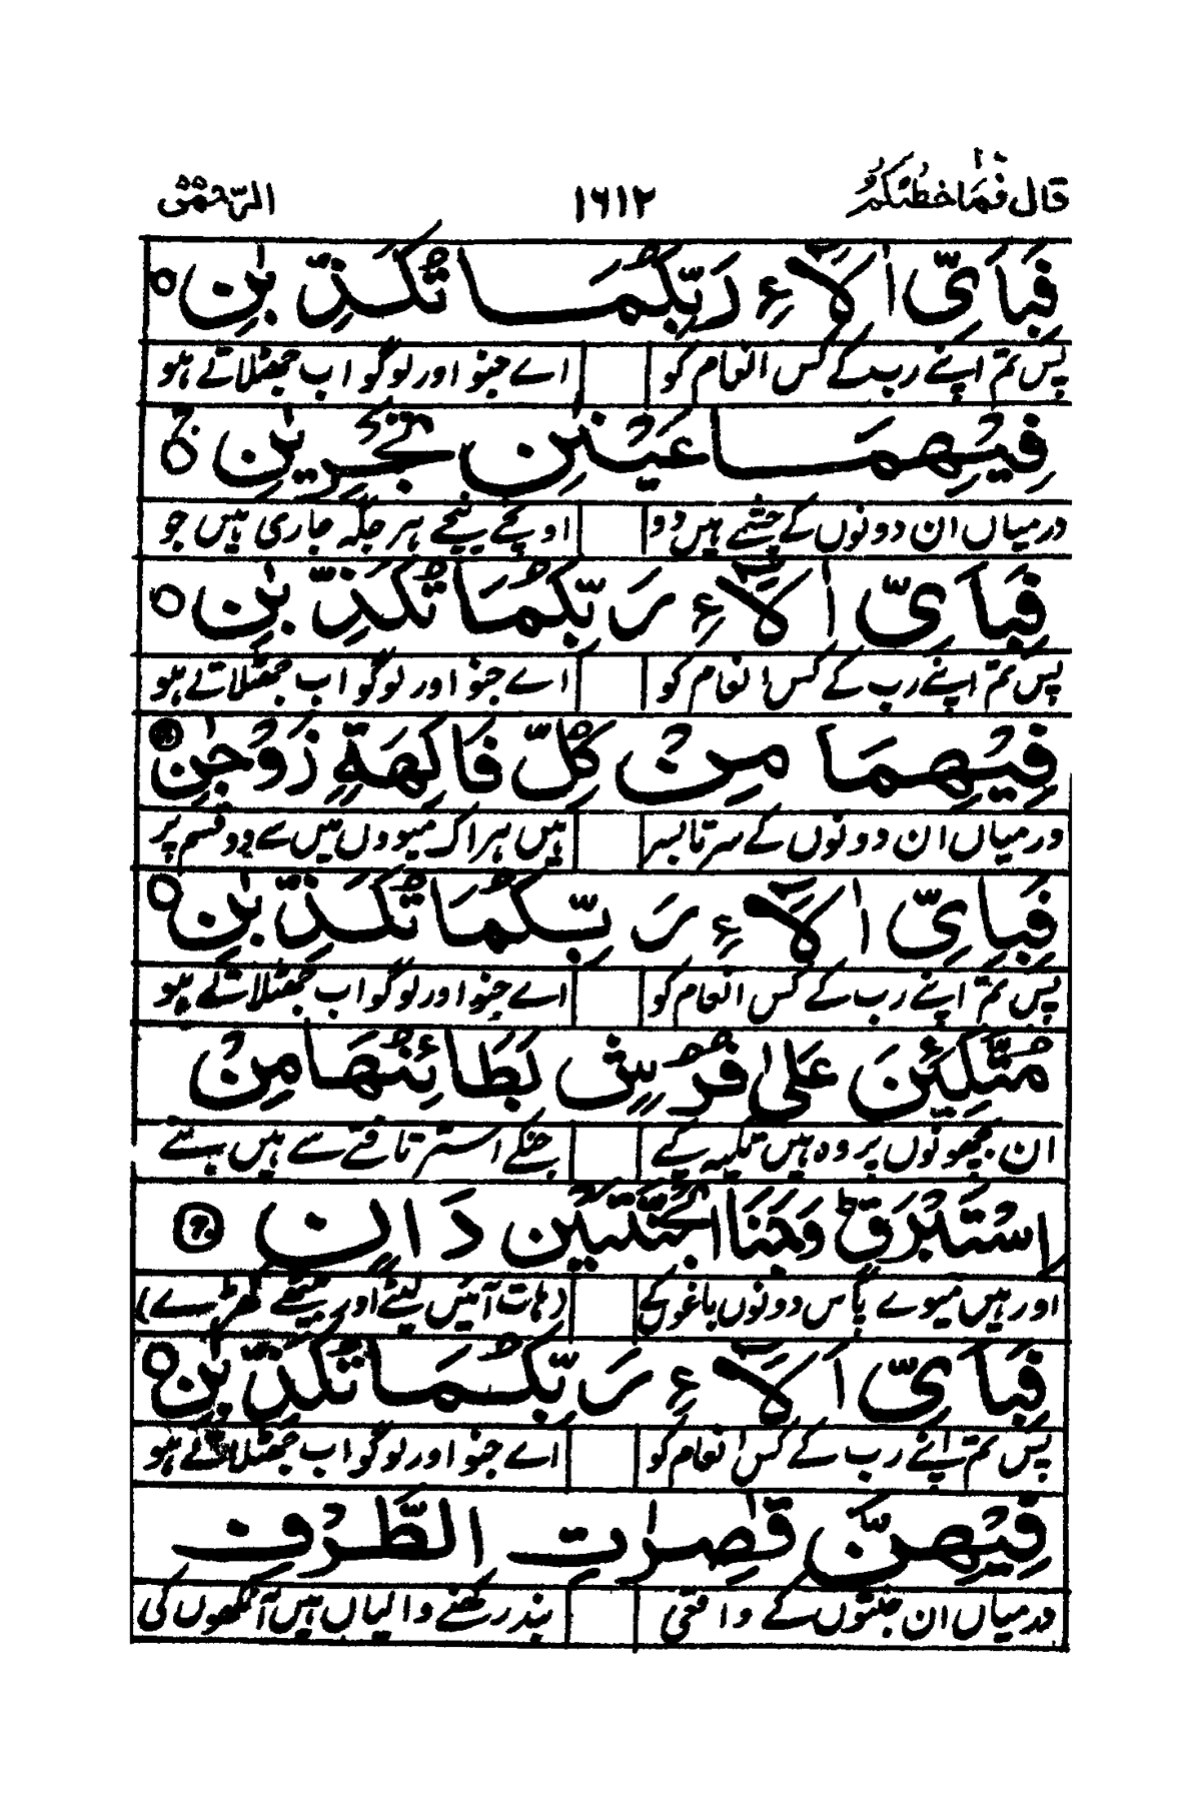 قال فما خطبكم ١٦١٢ الرحمٰن
فَبِاَيِّ اٰلَآءِ رَبِّكُمَا تُكَذِّبٰنِ ○
پس تم اپنے رب کے کس انعام کو اے جنو اور لوگو اب جھٹلاتے ہو
فِيْهِمَا عَيْنٰنِ تَجْرِيٰنِ ○ۚ
درمیاں ان دونوں کے چشمے ہیں دو اونچے نیچے ہر جگہ جاری ہیں جو
فَبِاَيِّ اٰلَآءِ رَبِّكُمَا تُكَذِّبٰنِ ○
پس تم اپنے رب کے کس انعام کو اے جنو اور لوگو اب جھٹلاتے ہو
فِيْهِمَا مِنْ كُلِّ فَاكِهَةٍ زَوْجٰنِ
درمیاں ان دونوں کے سرتا بسر ہیں ہر اک میووں میں سے دو قسم پر
فَبِاَيِّ اٰلَآءِ رَبِّكُمَا تُكَذِّبٰنِ ○
پس تم اپنے رب کے کس انعام کو اے جنو اور لوگو اب جھٹلاتے ہو
مُتَّكِئِنَ عَلٰى فُرُشٍ بَطَآئِنُهَا مِنْ
ان بچھونوں پر وہ ہیں تکیہ کیے جنکے استر تافتے سے ہیں
اِسْتَبْرَقٍ ؕ وَجَنَا الْجَنَّتَيْنِ دَانٍ
اور ہیں میوے پاس دونوں باغوں کے (ہات آئیں لیٹے اور بیٹھے کھڑے)
فَبِاَيِّ اٰلَآءِ رَبِّكُمَا تُكَذِّبٰنِ ○
پس تم اپنے رب کے کس انعام کو اے جنو اور لوگو اب جھٹلاتے ہو
فِيْهِنَّ قٰصِرٰتُ الطَّرْفِ
درمیاں ان جنتوں کے واقعی بند رکھنے والیاں ہیں آنکھوں کی